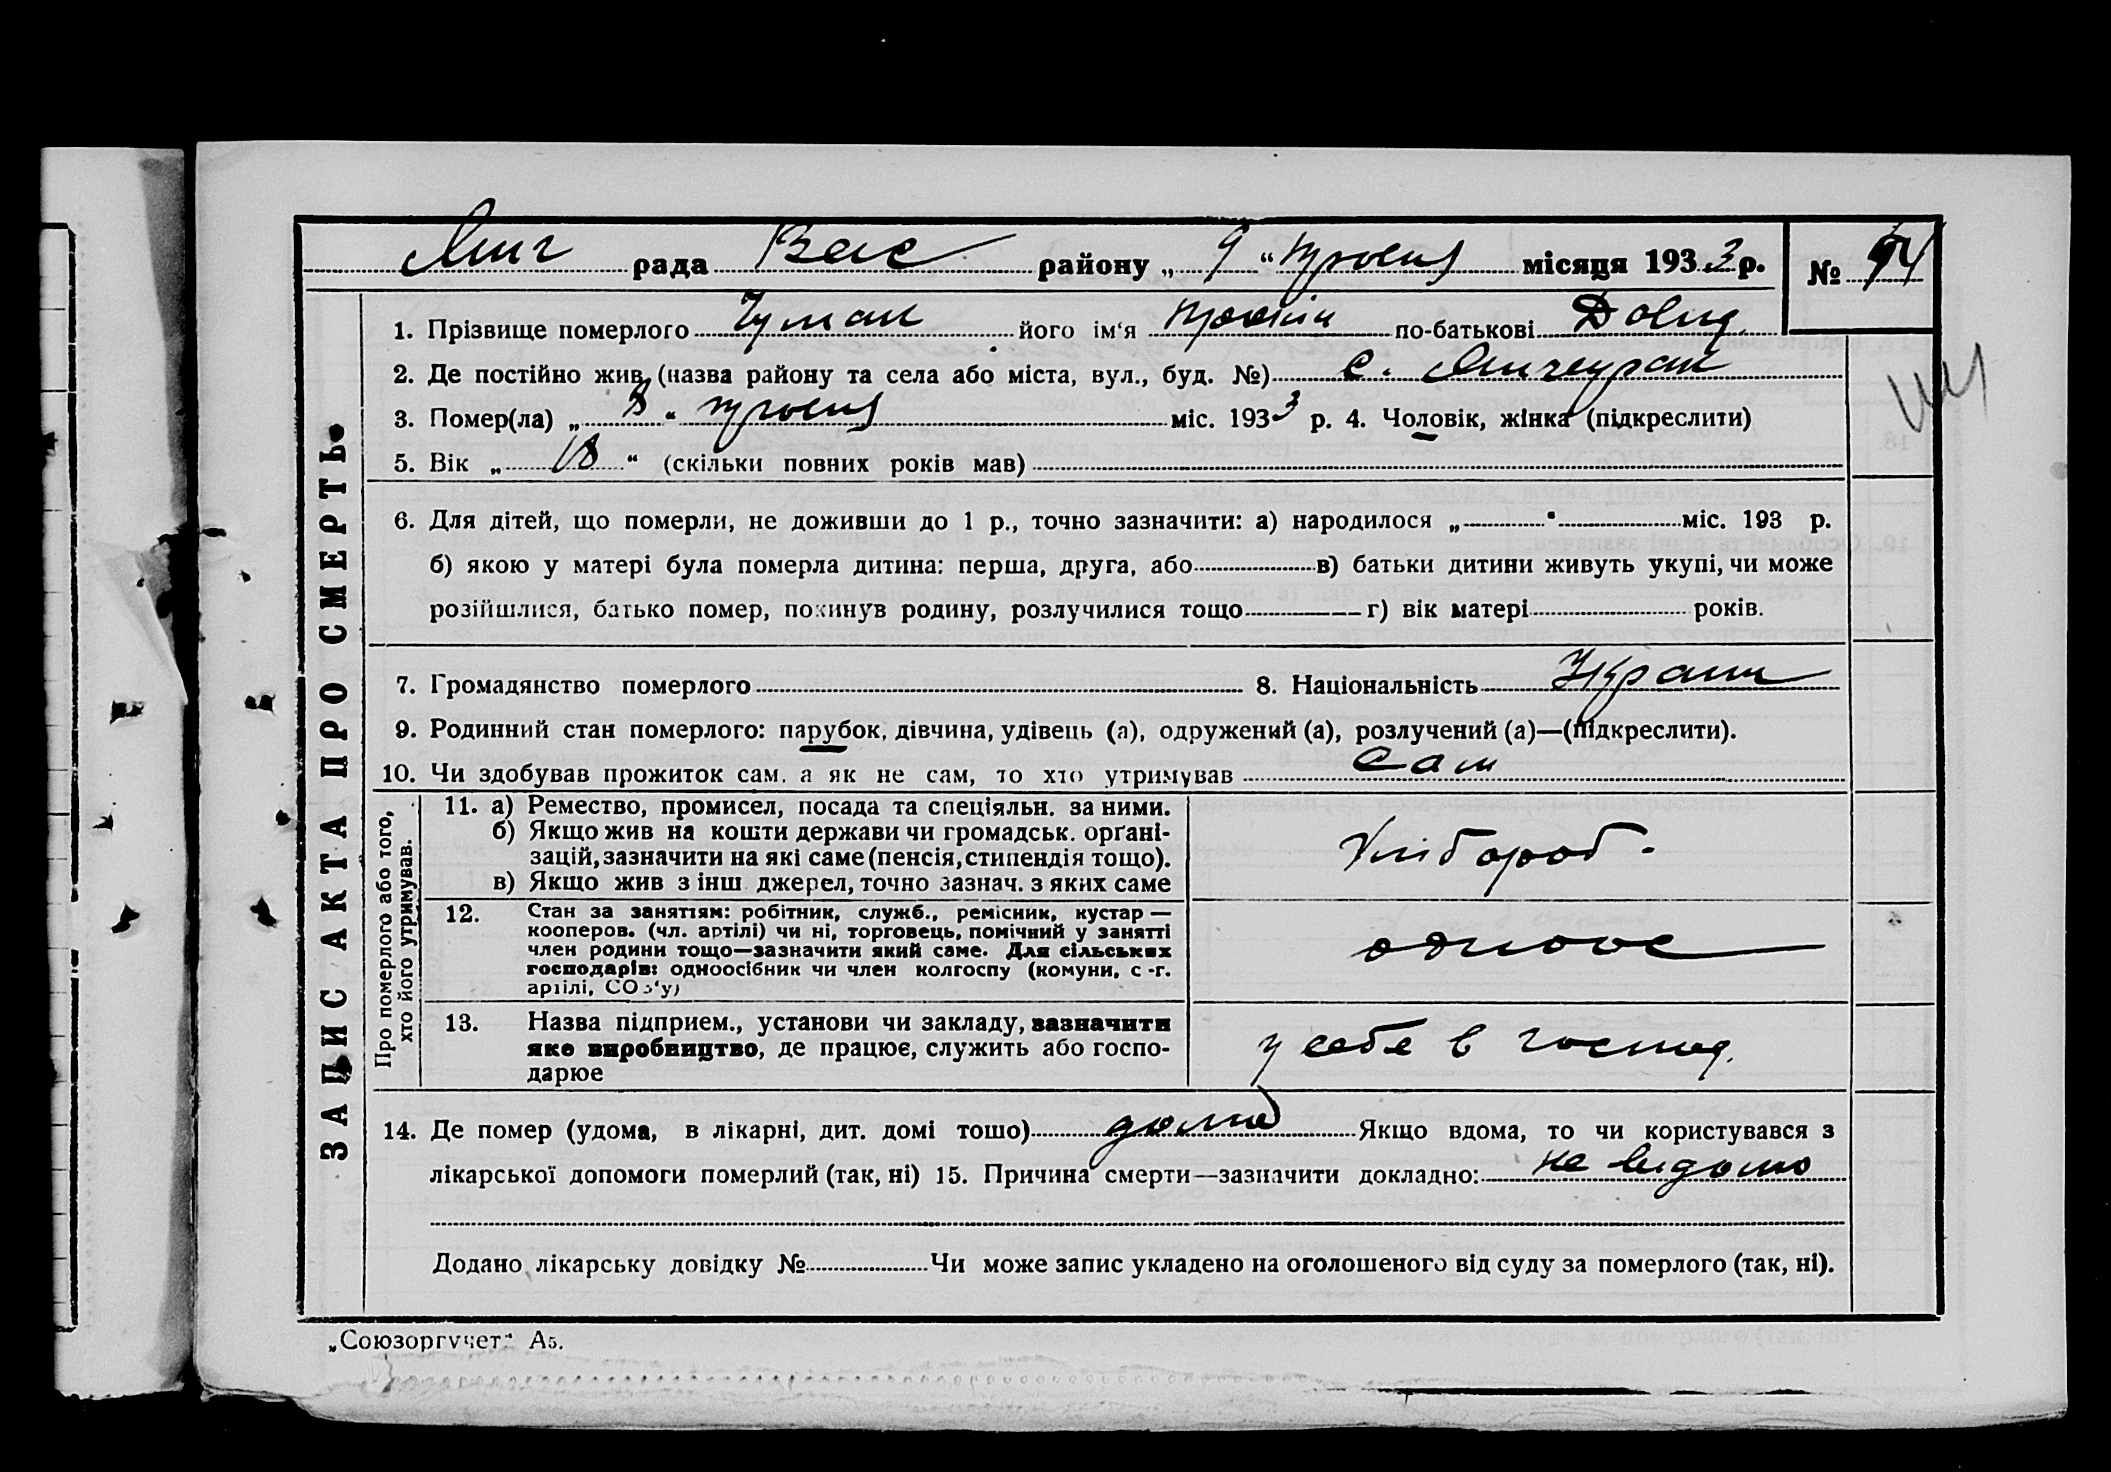 рада Вас району „ 9 “ травня місяця 1933 р. № 54
1. Прізвище померлого Чумак його ім‘я по-батькові
2. Де постійно жив (назва району та села або міста, вул., буд. №) с.
3. Помер(ла) „ 8 “ травня міс. 1933 р. 4. Чоловік, жінка (підкреслити)
5. Вік „ 18 “ (скільки повних років мав)
6. Для дітей, що померли, не доживши до 1 р., точно зазначити: а) народилося „ “ міс. 193 р.
б) якою у матері була померла дитина: перша, друга, або в) батьки дитини живуть укупі, чи може
розійшлися, батько помер, покинув родину, розлучилися тощо г) вік матері років.
7. Громадянство померлого 8. Національність Україн
9. Родинний стан померлого: парубок, дівчина, удівець (а), одружений (а), розлучений (а)—(підкреслити).
10. Чи здобував прожиток сам, а як не сам, то хто утримував сам
ЗАПИС АКТА ПРО СМЕРТЬ
Про померлого або того,
хто його утримував.
11. а) Ремество, промисел, посада та спеціяльн. за ними.
б) Якщо жив на кошти держави чи громадськ. орґані-
зацій, зазначити на які саме (пенсія, стипендія тощо).
в) Якщо жив з інш джерел, точно зазнач. з яких саме
Хлібороб.
12. Стан за заняттям: робітник, служб., ремісник, кустар —
кооперов. (чл. артілі) чи ні, торговець, помічний у занятті
член родини тощо—зазначити який саме. Для сільських
господарів: одноосібник чи член колгоспу (комуни, с-г.
артілі, СОЗ‘у)
одноос
13. Назва підприєм., установи чи закладу, зазначити
яке виробництво, де працює, служить або госпо-
дарює
у себе в господ.
14. Де помер (удома, в лікарні, дит. домі тощо) дома Якщо вдома, то чи користувався з
лікарської допомоги померлий (так, ні) 15. Причина смерти—зазначити докладно: не видомо
Додано лікарську довідку № Чи може запис укладено на оголошеного від суду за померлого (так, ні).
„Союзоргучет“ А5.